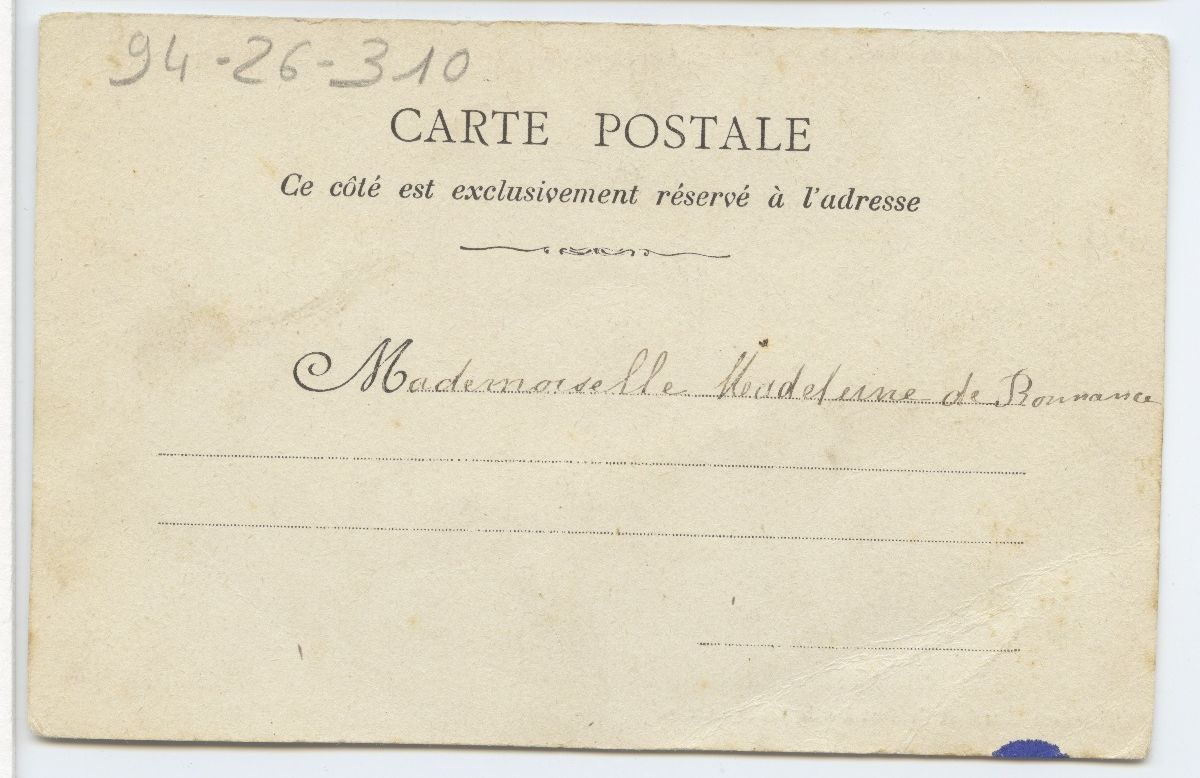 94-26-310
CARTE POSTALE
Ce côté est exclusivement réservé à l'adresse
Mademoiselle Madeleine de Ronnance